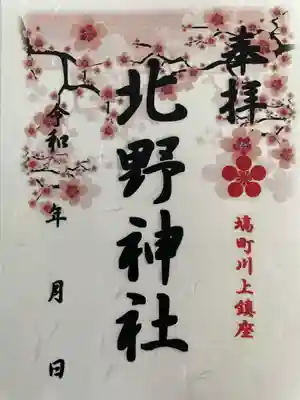 奉拝
塙町川上鎮座
北野神社
令和 年 月 日